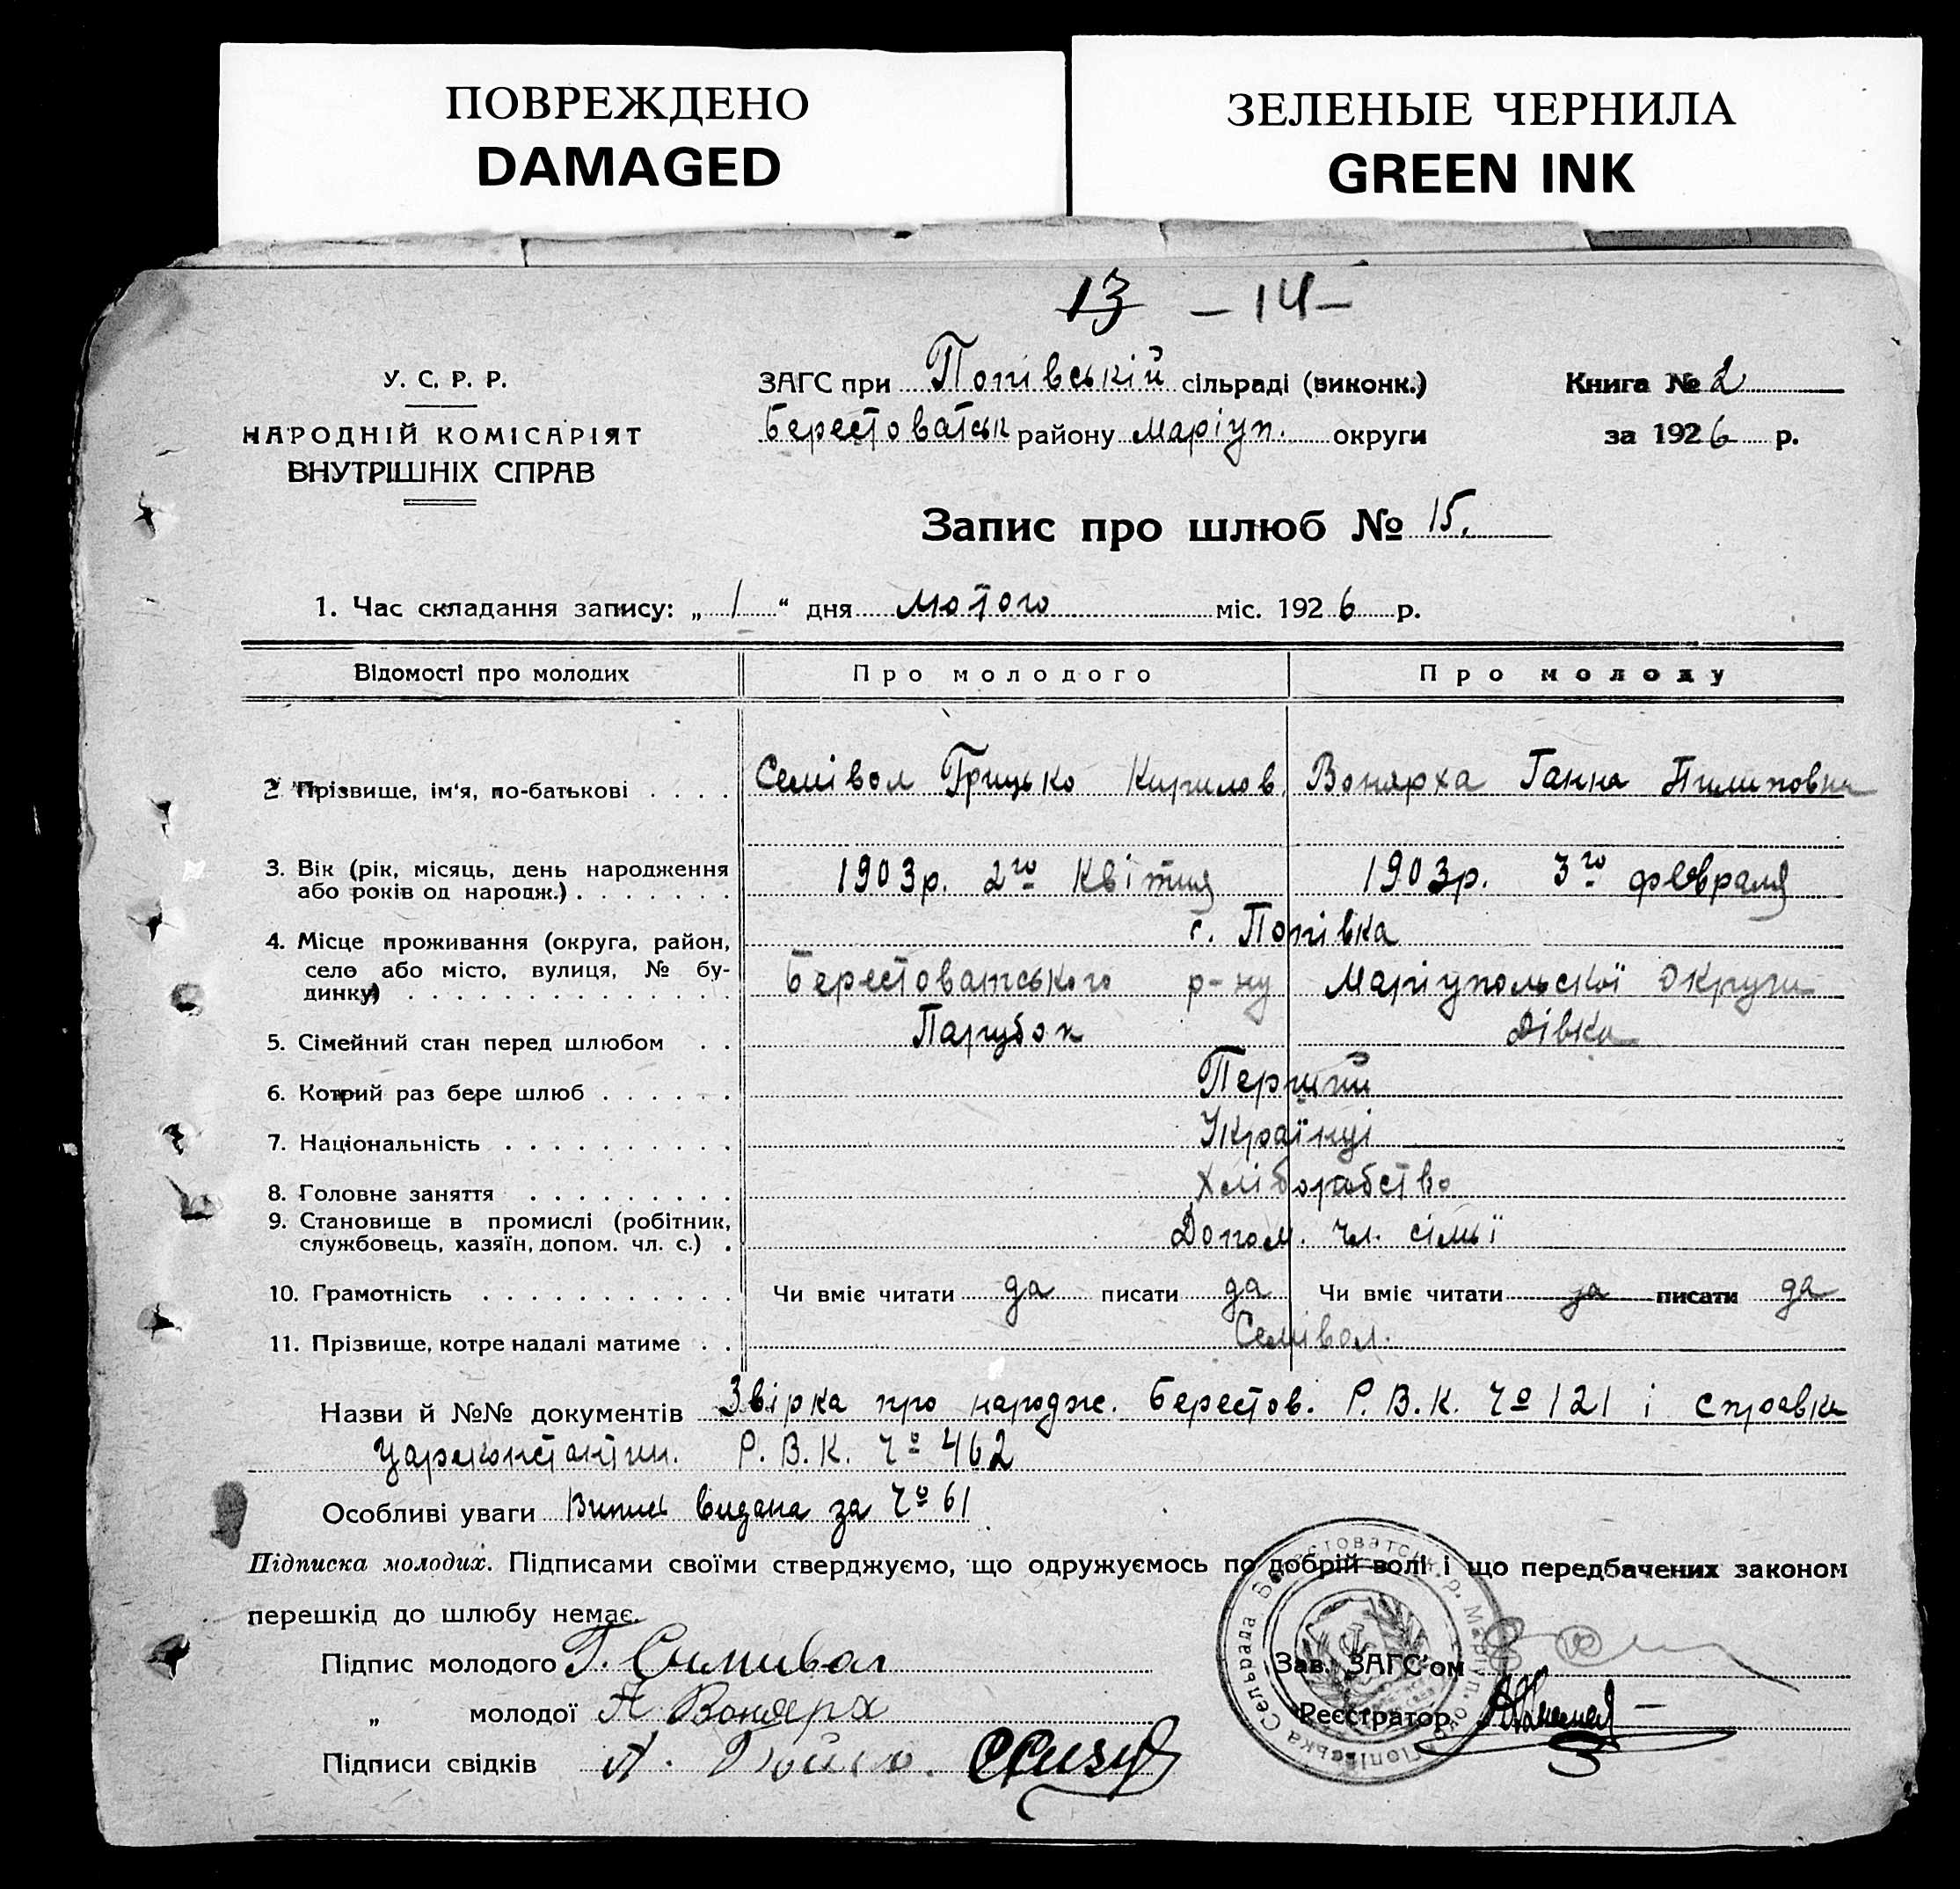 ПОВРЕЖДЕНО
DAMAGED
ЗЕЛЕНЫЕ ЧЕРНИЛА
GREEN INK
13 — 14 —
У. С. Р. Р.
НАРОДНІЙ КОМІСАРІЯТ
ВНУТРІШНІХ СПРАВ
ЗАГС при Попівській сільраді (виконк.)
Берестоватськ району Маріуп. округи
Книга № 2
за 1926 р.
Запис про шлюб № 15.
1. Час складання запису: „ 1 “ дня лютого міс. 1926 р.
Відомості про молодих Про молодого Про молоду
2 Прізвище, ім'я, по-батькові . . . . Семівол Грицько Кирилов. Вонярха Ганна Пилиповна
3. Вік (рік, місяць, день народження
або років од народж.) . . . . . . . 1903р. 2го Квітня 1903р. 3го февраля
4. Місце проживання (округа, район, с. Попівка
село або місто, вулиця, № бу-
динку) . . . . . . . . . . . . . . Берестоватського р-ну Маріупольскої Округи
5. Сімейний стан перед шлюбом . . Парубок Дівка
6. Котрий раз бере шлюб . . . . . . Перший
7. Національність . . . . . . . . . . Українці
8. Головне заняття . . . . . . . . . Хліборобство
9. Становище в промислі (робітник,
службовець, хазяїн, допом. чл. с.) . Допом. чл. сімьї
10. Грамотність . . . . . . . . . . . Чи вміє читати да писати да Чи вміє читати да писати да
11. Прізвище, котре надалі матиме . . Семівол.
Назви й №№ документів Звірка про народж. Берестов. Р. В. К. Чо 121 і справка
Цареконстантин. Р. В. К. Чо 462
Особливі уваги Випись видана за Чо 61
Підписка молодих. Підписами своїми стверджуємо, що одружуємось по добрій волі і що передбачених законом
перешкід до шлюбу немає.
Підпис молодого Г. Симивол
„ молодої А Вонярх
Підписи свідків А. Бойко.
Зав. ЗАГС'ом
Реєстратор
Попівська Сельрада Берестоватськ. р. Маріуп. окр.